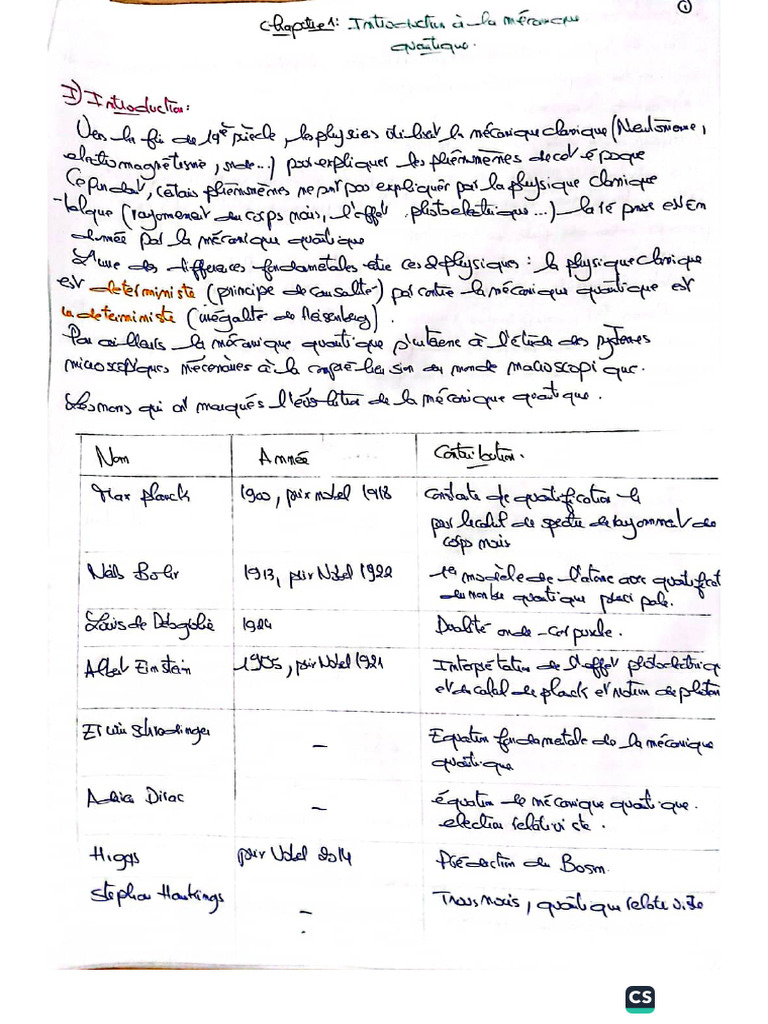 ①
Chapitre 1: Introduction à la mécanique
quantique.
I) Introduction:
Vers la fin de 19e siècle, les physiciens utilisent la mécanique classique (Neutonienne,
électromagnétisme, onde...) pour expliquer les phénomènes de cet époque
Cependant, certais phénomènes ne pent pas expliquer par la physique classique
(rayonnement du corps noirs, l'effet photoelectrique...) la
par la mécanique quantique
L'une des differences fondamentales entre ces 2 physiques: la physique classique
est deterministe (principe de causalité) par contre la mécanique quantique est
In deterministe (inégalité de Heisenberg).
Par ailleurs la mécanique quantique s'interesse à l'étude des systèmes
microscopiques nécessaires à la compréhension du monde macroscopique.
Les noms qui ont marqués l'évolution de la mécanique quantique.
Nom Année Contribution.
Max planck 1900, prix nobel 1918 Constante de quantification h
par le calcul de spectre de rayonnement de
corps noirs
Niels Bohr 1913, prix Nobel 1922 1er modèle de l'atome avec quantificat
du nombre quantique principale.
Louis de Debroglie 1924 Dualité onde-corpuscule.
Albert Einstein 1905, prix Nobel 1921 Interprétation de l'effet photoélectriq
et du calcul de planck et notion de photon
Erwin Schrodinger - Equation fondamentale de la mécanique
quantique
Dirac - équation de mécanique quantique.
electron relativiste.
Higgs prix Nobel 2014 Prédiction du Boson.
Stephan Hawkings - Trous noirs, quantique relativiste
CS